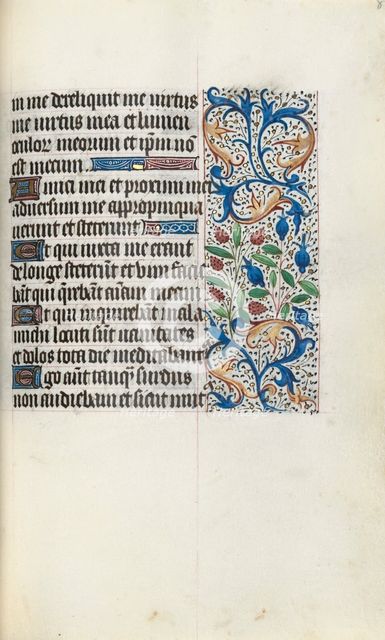 in me dereliquit me uirtus
me uirtus mea et lumen
oculor meorum et ip̄m nō
est mecum.
Amici mei et proximi mei
aduersum me appropinqua
uerunt et steterunt.
Et qui iuxta me erant
de longe steterūt et vim faciē
bāt qui querebāt aīam meam
Et qui inquirebāt mala
michi locuti sūt uanitates
et dolos tota die meditabant
Ego aūt tanq̄ surdus
non audiebam et sicut mut